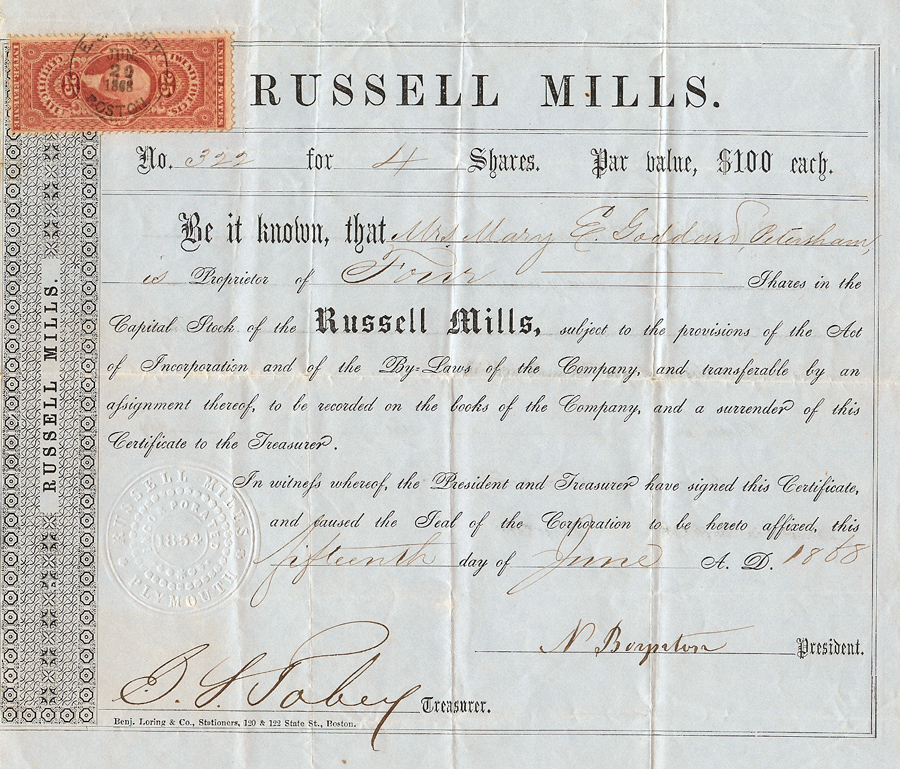 RUSSELL MILLS.
25 25
JUN
20
1868
BOSTON
No. 322 for 4 Shares. Par value, $100 each.
Be it known, that Mrs. Mary E. Goddard, Petersham,
is Proprietor of Four Shares in the
Capital Stock of the Russell Mills, subject to the provisions of the Act
of Incorporation and of the By-Laws of the Company, and transferable by an
assignment thereof, to be recorded on the books of the Company, and a surrender of this
Certificate to the Treasurer.
In witness whereof, the President and Treasurer have signed this Certificate,
and caused the Seal of the Corporation to be hereto affixed, this
fifteenth day of June A. D. 1868
RUSSELL MILLS
INCORPORATED
1854
PLYMOUTH
RUSSELL MILLS.
N Boynton President.
Tobey Treasurer.
Benj. Loring & Co., Stationers, 120 & 122 State St., Boston.